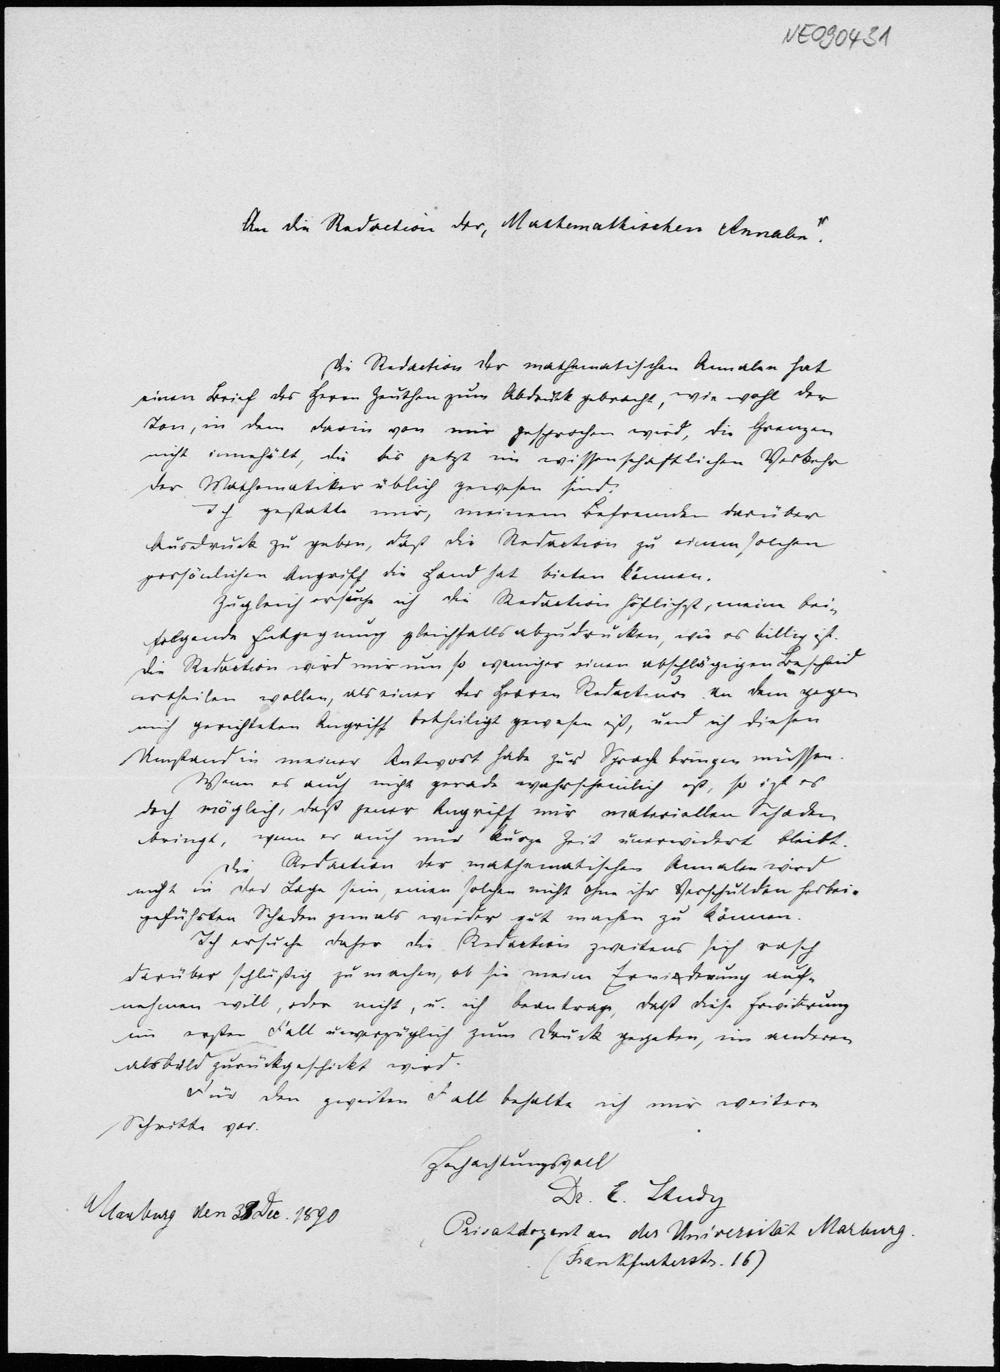 NE090431
An die Redaction der „Mathematischen Annalen".
Die Redaction der mathematischen Annalen hat
einen Brief des Herrn Zeuthen zum Abdruck gebracht, wiewohl der
Ton, in dem darin von mir gesprochen wird, die Grenzen
nicht innehält, die bis jetzt im wissenschaftlichen Verkehr
der Mathematiker üblich gewesen sind.
Ich gestatte mir, meinem Befremden darüber
Ausdruck zu geben, daß die Redaction zu einem solchen
persönlichen Angriff die Hand hat bieten können.
Zugleich ersuche ich die Redaction höflichst, meine bei-
folgende Entgegnung gleichfalls abzudrucken, wie es billig ist.
Die Redaction wird mir um so weniger einen abschlägigen Bescheid
ertheilen wollen, als einer der Herren Redacteure an dem gegen
mich gerichteten Angriff betheiligt gewesen ist, und ich diesen
Umstand in meiner Antwort habe zur Sprache bringen müssen.
Wenn es auch nicht gerade wahrscheinlich ist, so ist es
doch möglich, daß jener Angriff mir materiellen Schaden
bringt, wenn er auch nur kurze Zeit unerwidert bleibt.
Die Redaction der mathematischen Annalen wird
nicht in der Lage sein, einen solchen nicht ohne ihr Verschulden herbei-
geführten Schaden jemals wieder gut machen zu können.
Ich ersuche daher die Redaction zweitens sich rasch
darüber schlüßig zu machen, ob sie meine Erwiderung auf-
nehmen will, oder nicht, u. ich beantrage, daß diese Erwiderung
im ersten Fall unverzüglich zum Druck gegeben, im anderen
alsbald zurückgeschickt wird.
Für den zweiten Fall behalte ich mir weitere
Schritte vor.
Hochachtungsvoll
Dr. E. Study
Marburg den 31 Dec. 1890
Privatdozent an der Universität Marburg.
(Frankfurterstr. 16)